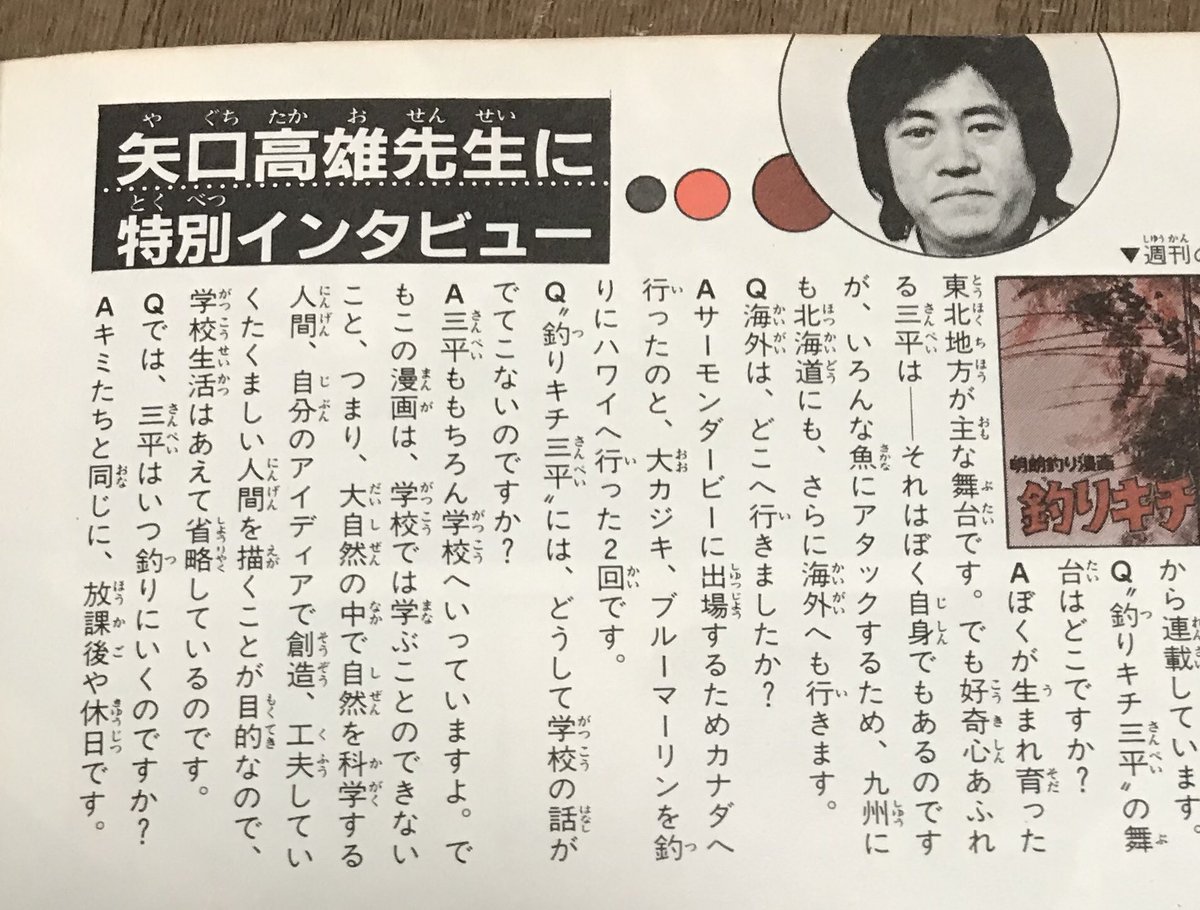 矢口高雄先生に
特別インタビュー
▼週刊
明朗釣り漫画
釣りキチ
から連載しています。
Q〝釣りキチ三平〟の舞
台はどこですか?
Aぼくが生まれ育った
東北地方が主な舞台です。でも好奇心あふれ
る三平は――それはぼく自身でもあるのです
が、いろんな魚にアタックするため、九州に
も北海道にも、さらに海外へも行きます。
Q海外は、どこへ行きましたか?
Aサーモンダービーに出場するためカナダへ
行ったのと、大カジキ、ブルーマーリンを釣
りにハワイへ行った2回です。
Q〝釣りキチ三平〟には、どうして学校の話が
でてこないのですか?
A三平ももちろん学校へいっていますよ。で
もこの漫画は、学校では学ぶことのできない
こと、つまり、大自然の中で自然を科学する
人間、自分のアイディアで創造、工夫してい
くたくましい人間を描くことが目的なので、
学校生活はあえて省略しているのです。
Qでは、三平はいつ釣りにいくのですか?
Aキミたちと同じに、放課後や休日です。